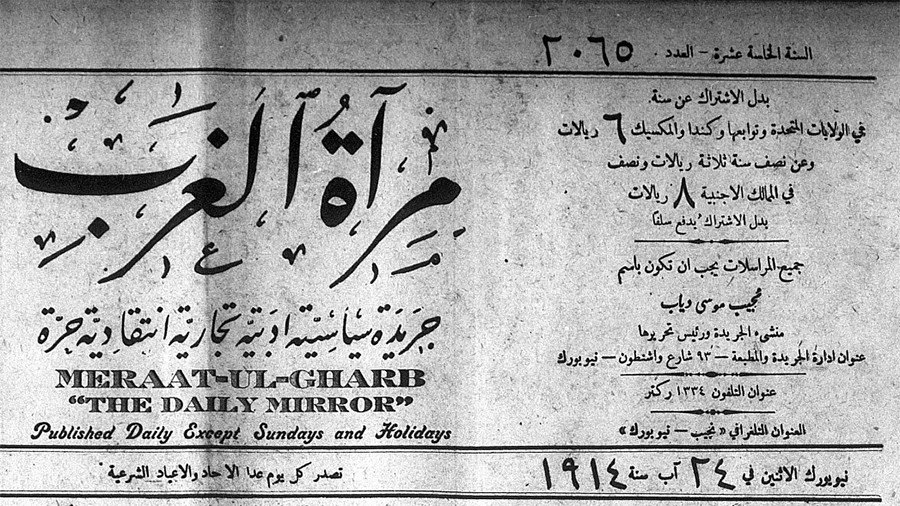 السنة الخامسة عشرة – العدد ٢٠٦٥
مرآة الغرب
جريدة سياسية ادبية تجارية انتقادية حرة
MERAAT-UL-GHARB
"THE DAILY MIRROR"
Published Daily Except Sundays and Holidays
بدل الاشتراك عن سنة.
في الولايات المتحدة وتوابعها وكندا والمكسيك ٦ ريالات
وعن نصف سنة ثلاثة ريالات ونصف
في الممالك الاجنبية ٨ ريالات
بدل الاشتراك يُدفع سلفًا
جميع المراسلات يجب ان تكون باسم
نجيب موسى دياب
منشىء الجريدة ورئيس تحريرها
عنوان ادارة الجريدة والمطبعة — ٩٣ شارع واشنطون – نيويورك
عنوان التلفون ١٣٣٤ ركتر
العنوان التلغرافي «نجيب – نيويورك»
تصدر كل يوم عدا الاحاد والاعياد الشرعية
نيويورك الاثنين في ٢٤ آب سنة ١٩١٤